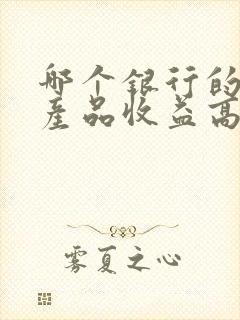 哪个银行的
产品收益高
雾夏之心